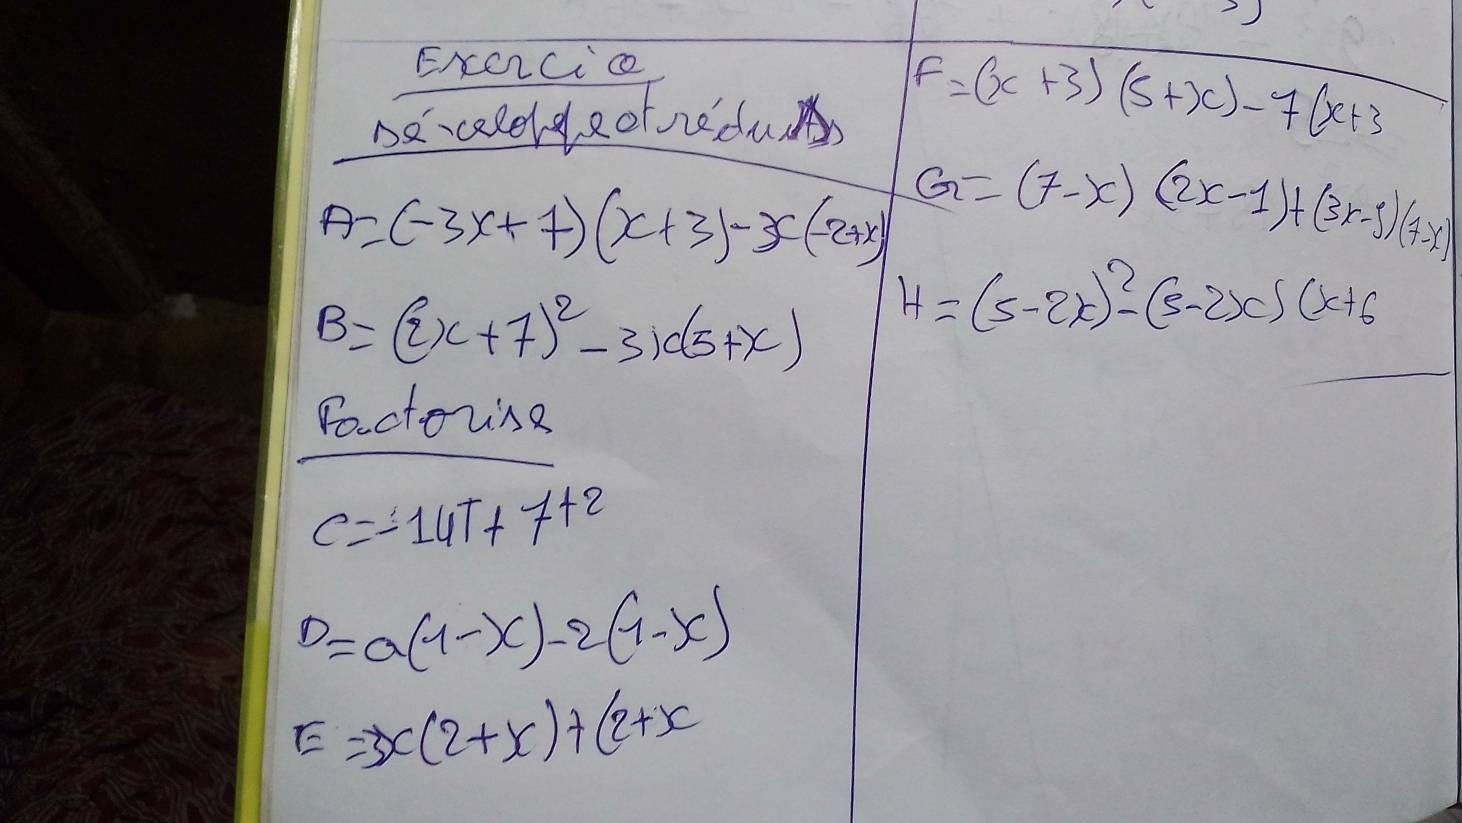 Exercice
Développe et réduis
A=(-3x+7)(x+3)-3x(-2+x)
B=(2x+7)²-3x(5+x)
Factorise
C=-14T+7t²
D=a(1-x)-2(1-x)
E=3x(2+x)+(2+x
F=(x+3)(5+x)-7(x+3
G=(7-x)(2x-1)+(3x-5)(7-x)
H=(5-2x)²-(5-2x)(x+6